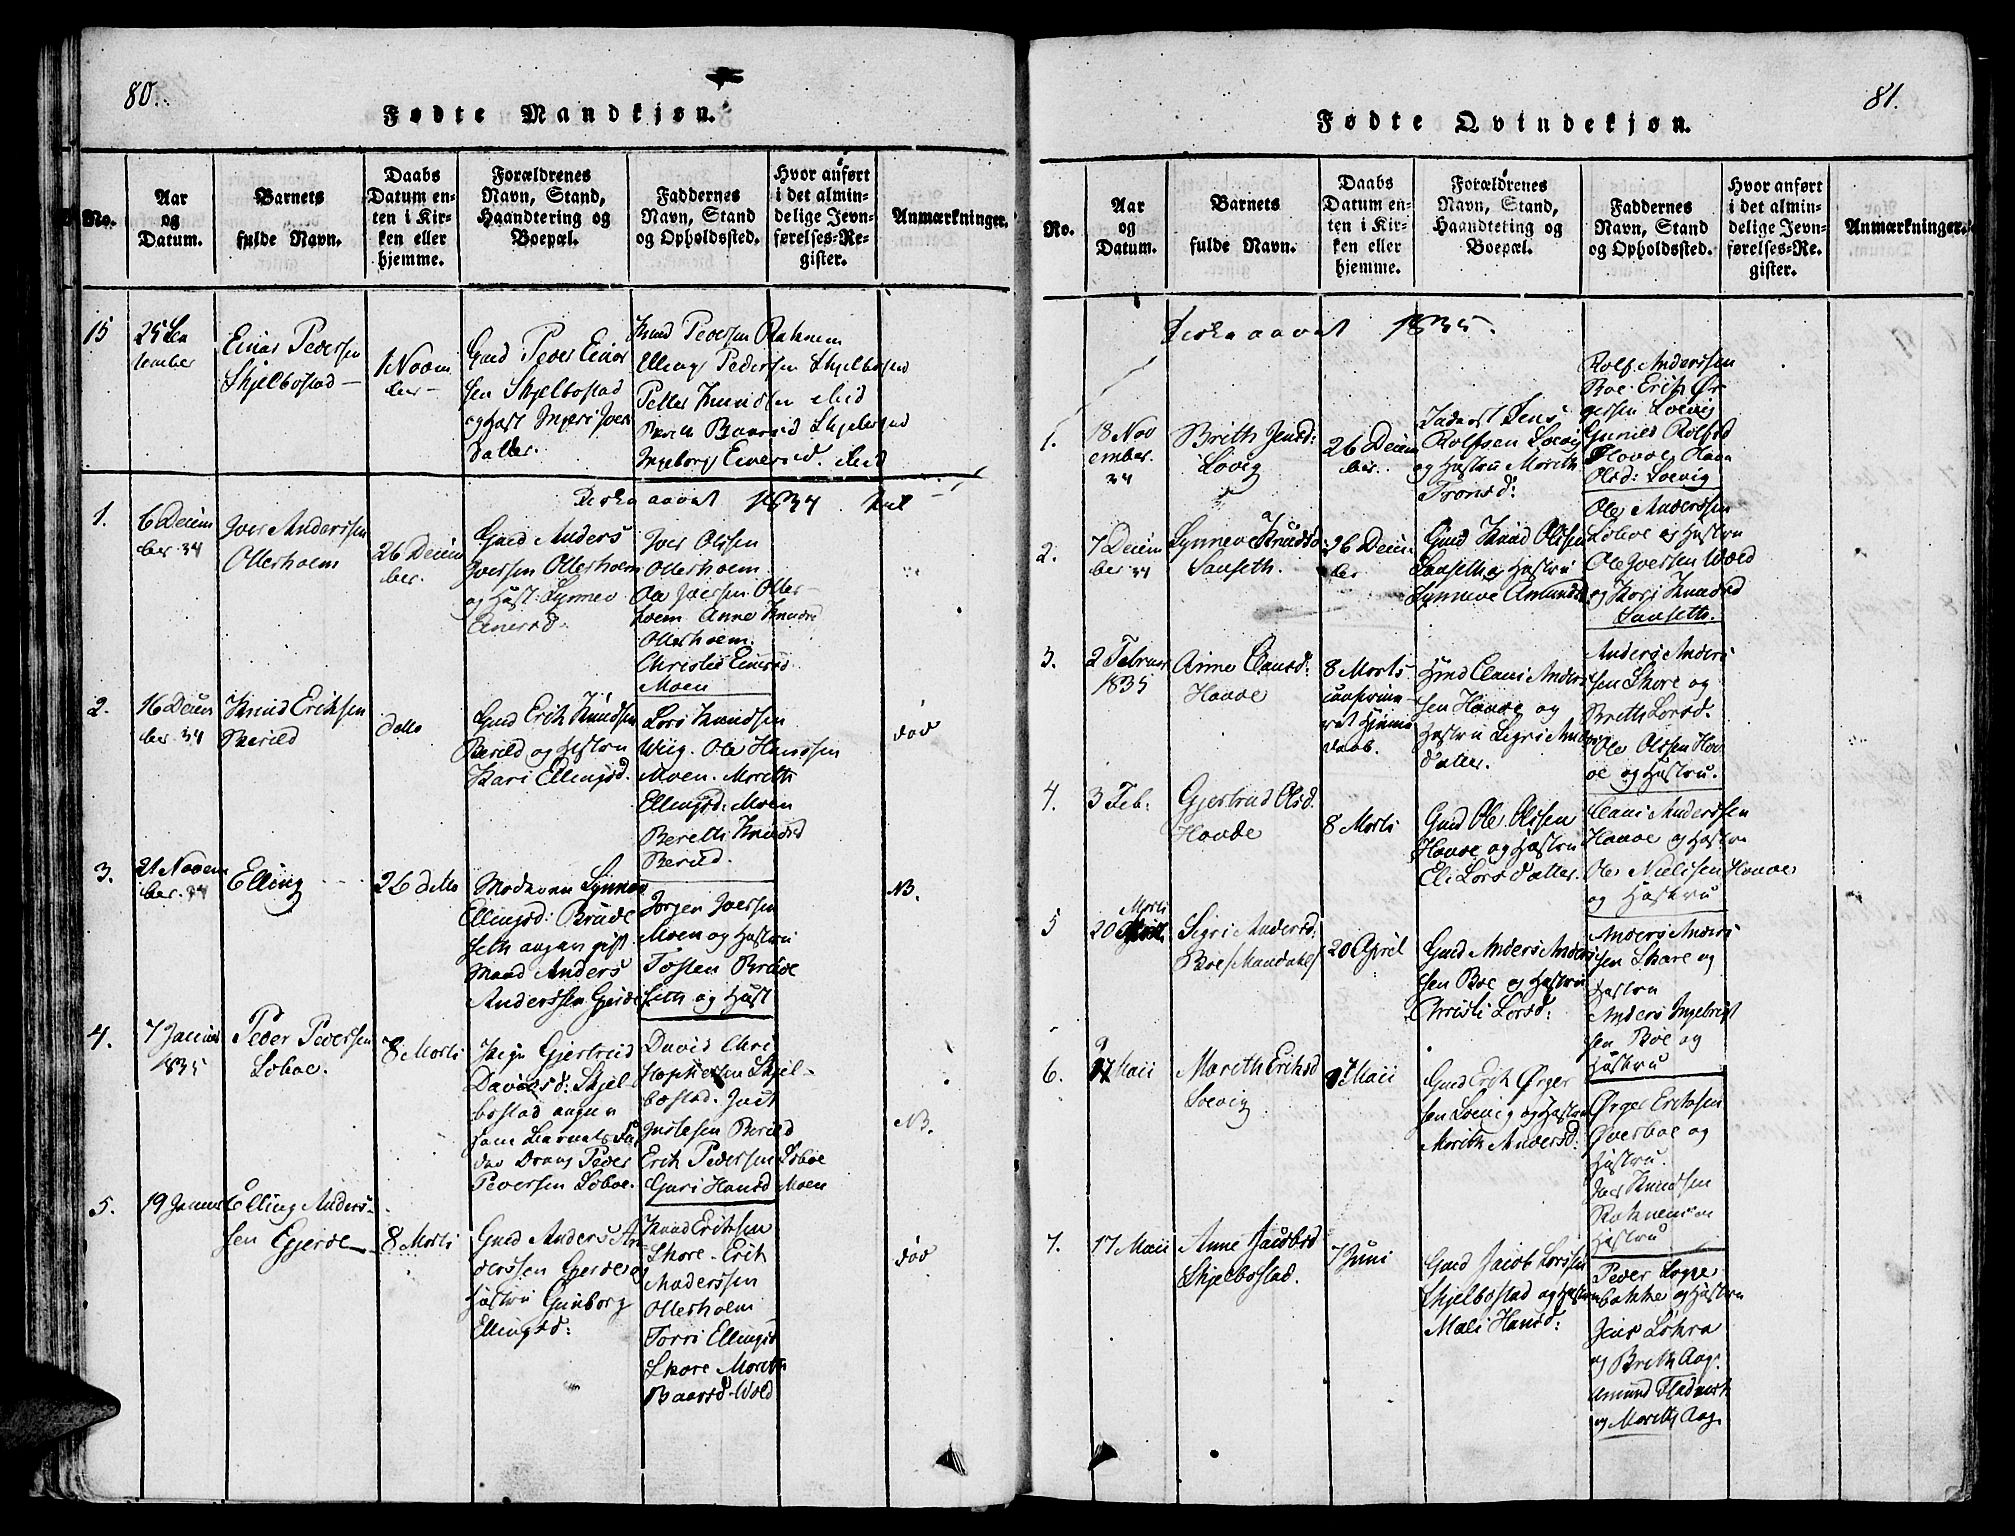 80.
Fødte Mandkjøn.
No.
Aar
og
Datum.
Barnets
fulde Navn.
Daabs
Datum en-
ten i Kir-
ken eller
hjemme.
Forældrenes
Navn, Stand,
Haandtering og
Boepæl.
Faddernes
Navn, Stand
og Opholdssted.
Hvor anført
i det almin-
delige Jevn-
førelses-Re-
gister.
Anmærkninger.
15
Einar Pedersen
Skjelbostad
1 Novem
ber
Gmd Peder Einar
sen Skjelbostad
datter.
Knud Pedersen
Elling Pedersen Skjelbostad
Petter Knudsen ibid
Skjelbostad
Ingeborg Einersd. ibid
Kirkeaaret
1.
6 Decem
ber 34
Iver Anderssen
Otterholm
26 Decem
ber.
Gmd Anders
Iversen Otterholm
og Hust: Synnev
Einersd:
Iver Olssen
Otterholm.
Ole Iversen Otter-
holm Anne Knudsd
Otterholm.
Christie Einersd
Moen
2.
16 Decem
ber 34
Knud Eriksen
Berild
detto
Gmd Erik Knudsen
Berild og Hustru
Kari Ellingsd.
Lars Knudsen
Wiig. Ole Hanssen
Moen. Marith
Ellingsd: Moen
Bereth Knudsd
Berild.
død
3.
21 Novem
ber. 34
Elling
26 detto
Moderen Synnev
Ellingsd: Brude
seth angav gift
Mand Anders
Anderssen Gjerde
Jørgen Iversen
Moen og Hustru
Tosten Brude
seth og Hust
NB.
4.
7 Januar
1835
Peder Pedersen
Løboe.
8 Marti
Pige Gjertrud
Davidsd: Skjel-
bostad angav
som Barnets Fa
der Dreng Peder
Pedersen Løboe.
David Chri
stophersen Skjel-
bostad. Just
Justesen Berild
Erik Pedersen Løboe
Guri Hansd Moen
NB.
5.
19 Januar
Elling Anders-
sen Gjerde
8 Marti
Gmd Anders An
derssen Gjerde og
Hustru Gunborg
Ellingsd:
Knud Eriksen
Skare. Erik
Anderssen
Otterholm
Torri Ellingsd
Skare Marith
Baarsd Wold
død
81.
Fødte Qvindekjøn.
No.
Aar
og
Datum.
Barnets
fulde Navn.
Daabs
Datum en-
ten i Kir-
ken eller
hjemme.
Forældrenes
Navn, Stand,
Haandtering og
Boepæl.
Faddernes
Navn, Stand
og Opholdssted.
Hvor anført
i det almin-
delige Jevn-
førelses-Re-
gister.
Anmærkninger.
Kirkeaaret 1835.
1.
18 Nov
ember.
34
Brith Jensd:
Løvig
26 Decem
ber.
Inderst Jens
Rolfsen Loevig
og Hustru Marith
Tronsd:
Rolf Anderssen
Boe. Erik Ør
gersen Loevig
Gunild Rolfsd
Olsd: Loevig
2.
7 Decem
ber 34
Synneve Knudsd:
Sanseth.
26 Decem
ber
Gmd Knud Olssen
Sanseth og Hustru
Synneve Amundsd
Ole Anderssen
Løboe og Hustru
Ole Iversen Wold
og Kari Knudsd
Sanseth.
3.
2 Februar
1835
Anne Clausd:
Hovde
8 Marti
daab.
Hmd Claus Anders
sen Hovde og
Hustru Sigri Anders
datter.
Anders Anders
sen Skare og
Breth Larsd.
Ole Olssen Hov
de og Hustru.
4.
3 Feb:
Gjertrud Olsd.
Hovde
8 Marti
Gmd Ole Olssen
Hovde og Hustru
Eli Larsdatter.
Claus Anderssen
Hovde og Hustru
Ole Nielsen Hovde
og Hustru
5
20 Marti
Sigri Andersd:
Boe/Mandahl/
20 April
Gmd Anders Anders
sen Boe og Hustru
Christi Larsd:
Anders Anders
sen Skare og
Hustru
Anders Ingebrigt
sen Boe og
Hustru
6.
Maii
Marith Eriksd
Loevig
17 Maii
Gmd Erik Ørger
sen Loevig og Hustru
Marith Andersd:
Ørger Eriksen
Øverboe og
Hustru.
Iver Knudsen
Hustru
7.
17 Maii
Anne Jacobsd
Skjelbostad.
7 Juni
Gmd Jacob Larssen
Skjelbostad og Hustru
Mali Hansd:
Peder Soge
bakke og Hustru
Jens Løkra
og Brith Aag.
Amund Fladmark
og Marith Aag.